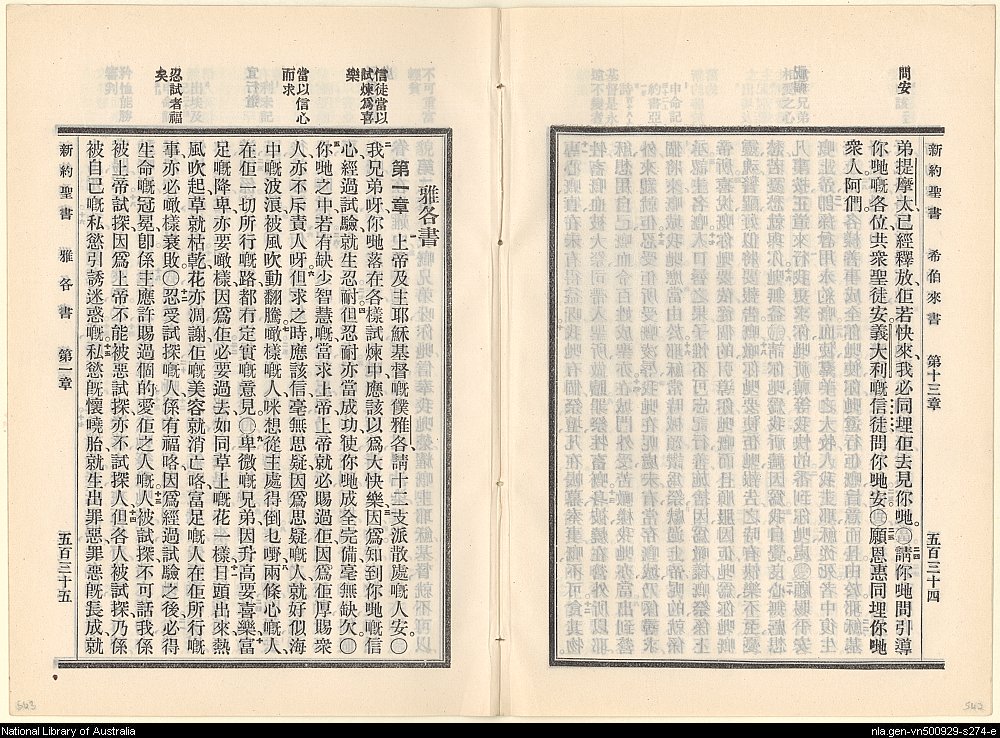 新約聖書 希伯來書 第十三章 五百三十四
問安
弟提摩太、已經釋放、佢若快來、我必同埋佢去見你哋。〇請你哋問引導
你哋嘅各位、共衆聖徒安、義大利嘅信徒問你哋安、〇願恩惠同埋你哋
衆人、阿們。
雅各書
第一章
上帝及主耶穌基督嘅僕雅各、請十二支派散處嘅人安。〇
信徒當以
試煉爲喜
樂
我兄弟呀、你哋落在各樣試煉中、應該以爲大快樂、因爲知到你哋嘅信
心、經過試驗就生忍耐、但忍耐亦當成功、使你哋成全完備、毫無缺欠。〇
你哋之中若有缺少智慧嘅、當求上帝、上帝就必賜過佢、因爲佢厚賜衆
當以信心
而求
人、亦不斥責人呀、但求之時應該信、毫無思疑、因爲思疑嘅人就好似海
中嘅波浪、被風吹動翻騰、噉樣嘅人、咪想從主處得倒乜嘢、兩條心嘅人、
在佢一切所行嘅路、都有定實嘅意見。〇卑微嘅兄弟、因升高要喜樂、富
足嘅降卑亦要噉樣、因爲佢必要過去、如同草上嘅花一樣、日頭出來熱
風吹起、草就枯乾、花亦凋謝、佢嘅美容就消亡咯、富足嘅人、在佢所行嘅
忍試者福
矣
事、亦必噉樣衰敗。〇忍受試探嘅人、係有福咯、因爲經過試驗之後、必得
生命嘅冠冕、卽係主應許賜過個的愛佢之人嘅、人被試探、不可話我係
被上帝試探、因爲上帝不能被惡試探、亦不試探人、但各人被試探、乃係
被自己嘅私慾引誘迷惑嘅、私慾旣懷嘵胎、就生出罪惡、罪惡旣長成、就
新約聖書 雅各書 第一章 五百三十五
543
542
National Library of Australia
nla.gen-vn500929-s274-e